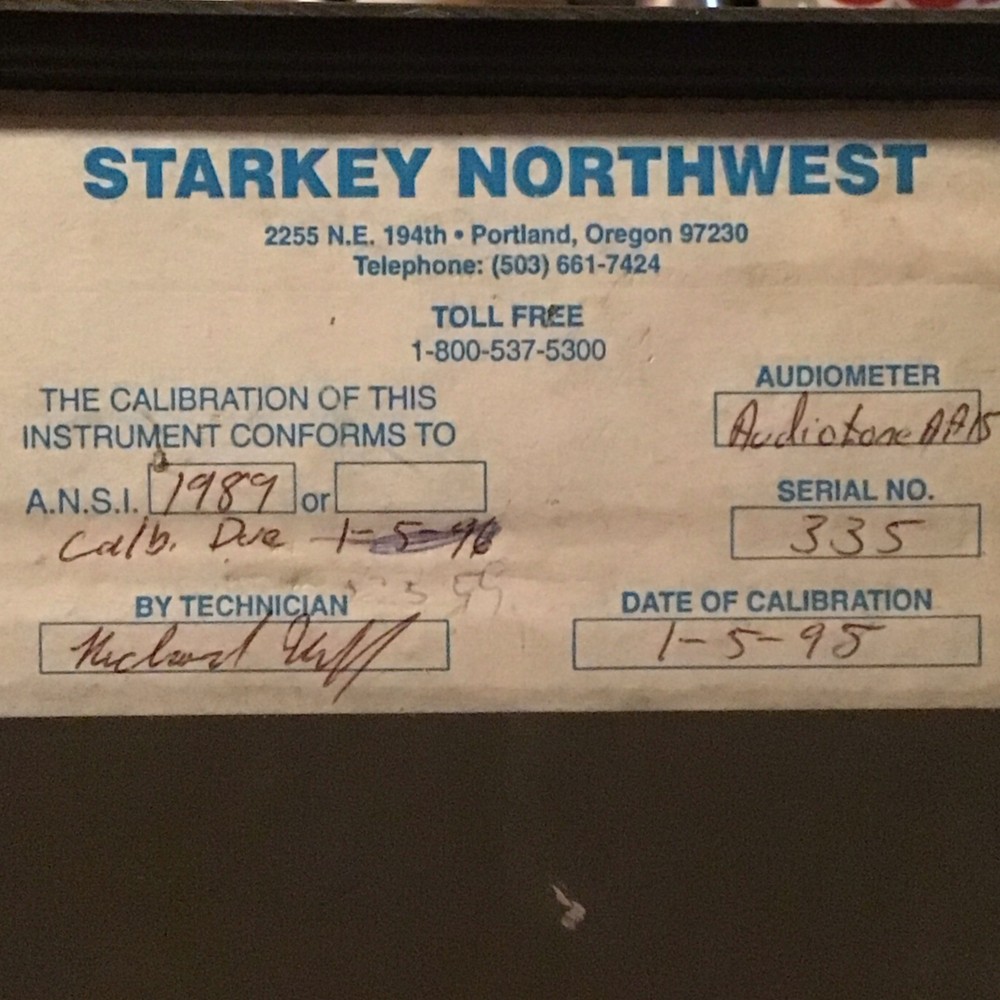 STARKEY NORTHWEST
2255 N.E. 194th • Portland, Oregon 97230
Telephone: (503) 661-7424
TOLL FREE
1-800-537-5300
THE CALIBRATION OF THIS
INSTRUMENT CONFORMS TO
A.N.S.I. 1989 or
Calb. Due 1-5-96
BY TECHNICIAN
Richard
AUDIOMETER
Audiotone
SERIAL NO.
335
DATE OF CALIBRATION
1-5-95